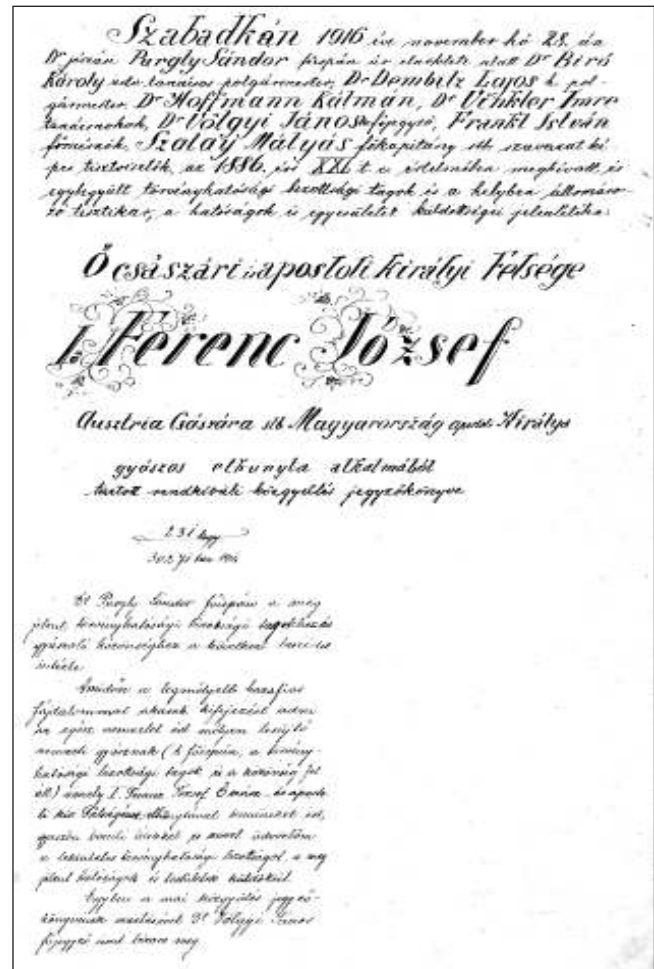 Szabadkán 1916 évi november hó 28. án
Dr jószási Purgly Sándor főispán úr elnöklete alatt Dr Biró
Károly udv. tanácsos polgármester, Dr Dembitz Lajos h. pol-
gármester, Dr Hoffmann Kálmán, Dr Vinkler Imre
tanácsnokok, Dr Völgyi János főjegyző, Frankl István
főmérnök, Szalay Mátyás főkapitány stb szavazatké
pes tisztviselők, az 1886. évi XXI t. c értelmében meghívott és
egybegyült törvényhatósági bizottsági tagok és a helyben állomáso-
zó tisztikar, a hatóságok és egyesületek küldöttségei jelenlétébe
Ő császári és apostoli királyi Felsége
I. Ferenc József
Ausztria Császára stb Magyarország apostoli Királya
gyászos elhunyta alkalmából
tartott rendkívüli közgyűlés jegyzőkönyve
231 kgy
1916
Dr Purgly Sándor főispán a meg
jelent törvényhatósági bizottsági tagokhoz és
gyászoló közönséghez a következő
intézte
Amidőn a legmélyebb hazafias
fájdalommal akarok kifejezést adni
az egész nemzetet ért mélyen lesújtó
nemzeti gyásznak (h. főispán, a törvény-
hatósági bizottsági tagok és a közönség fel
áll) amely I. Ferenc József Császár és aposto
li kir. Felségének elhunytával bennünket ért,
gyászba borult és azzal üdvözlöm
a tekintetes törvényhatósági bizottságot, a meg
jelent hatóságok és testületek küldötteit.
Egyben a mai közgyűlés jegyző-
könyvének vezetésével Dr Völgyi János
főjegyző urat bízom meg.